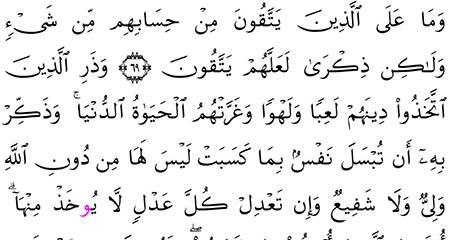 وَمَا عَلَى ٱلَّذِينَ يَتَّقُونَ مِنْ حِسَابِهِم مِّن شَىْءٍ
وَلَٰكِن ذِكْرَىٰ لَعَلَّهُمْ يَتَّقُونَ ۝٦٩ وَذَرِ ٱلَّذِينَ
ٱتَّخَذُوا۟ دِينَهُمْ لَعِبًا وَلَهْوًا وَغَرَّتْهُمُ ٱلْحَيَوٰةُ ٱلدُّنْيَا ۚ وَذَكِّرْ
بِهِۦٓ أَن تُبْسَلَ نَفْسٌۢ بِمَا كَسَبَتْ لَيْسَ لَهَا مِن دُونِ ٱللَّهِ
وَلِىٌّ وَلَا شَفِيعٌ وَإِن تَعْدِلْ كُلَّ عَدْلٍ لَّا يُوخَذْ مِنْهَآ ۗ